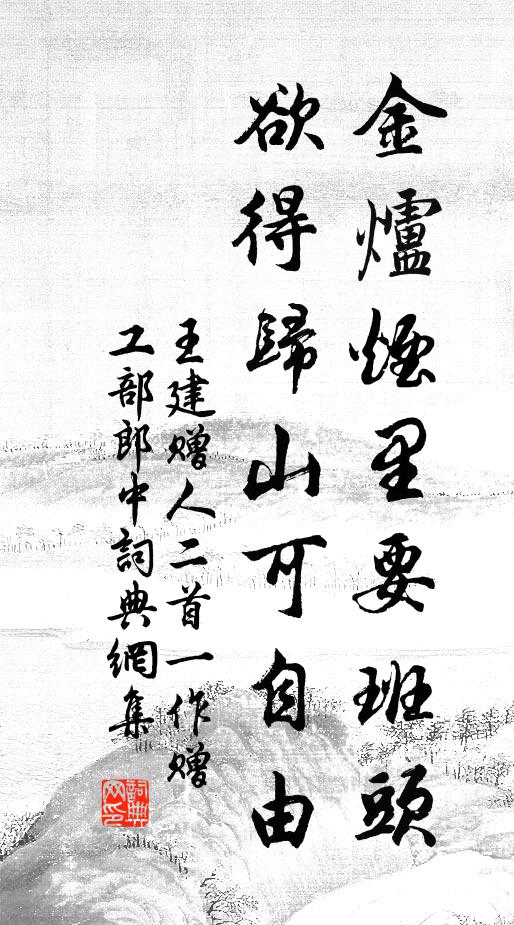 金爐煙里要班頭
欲得歸山可自由
王建贈人二首一作贈
工部郎中詞典網集
詞典
网印